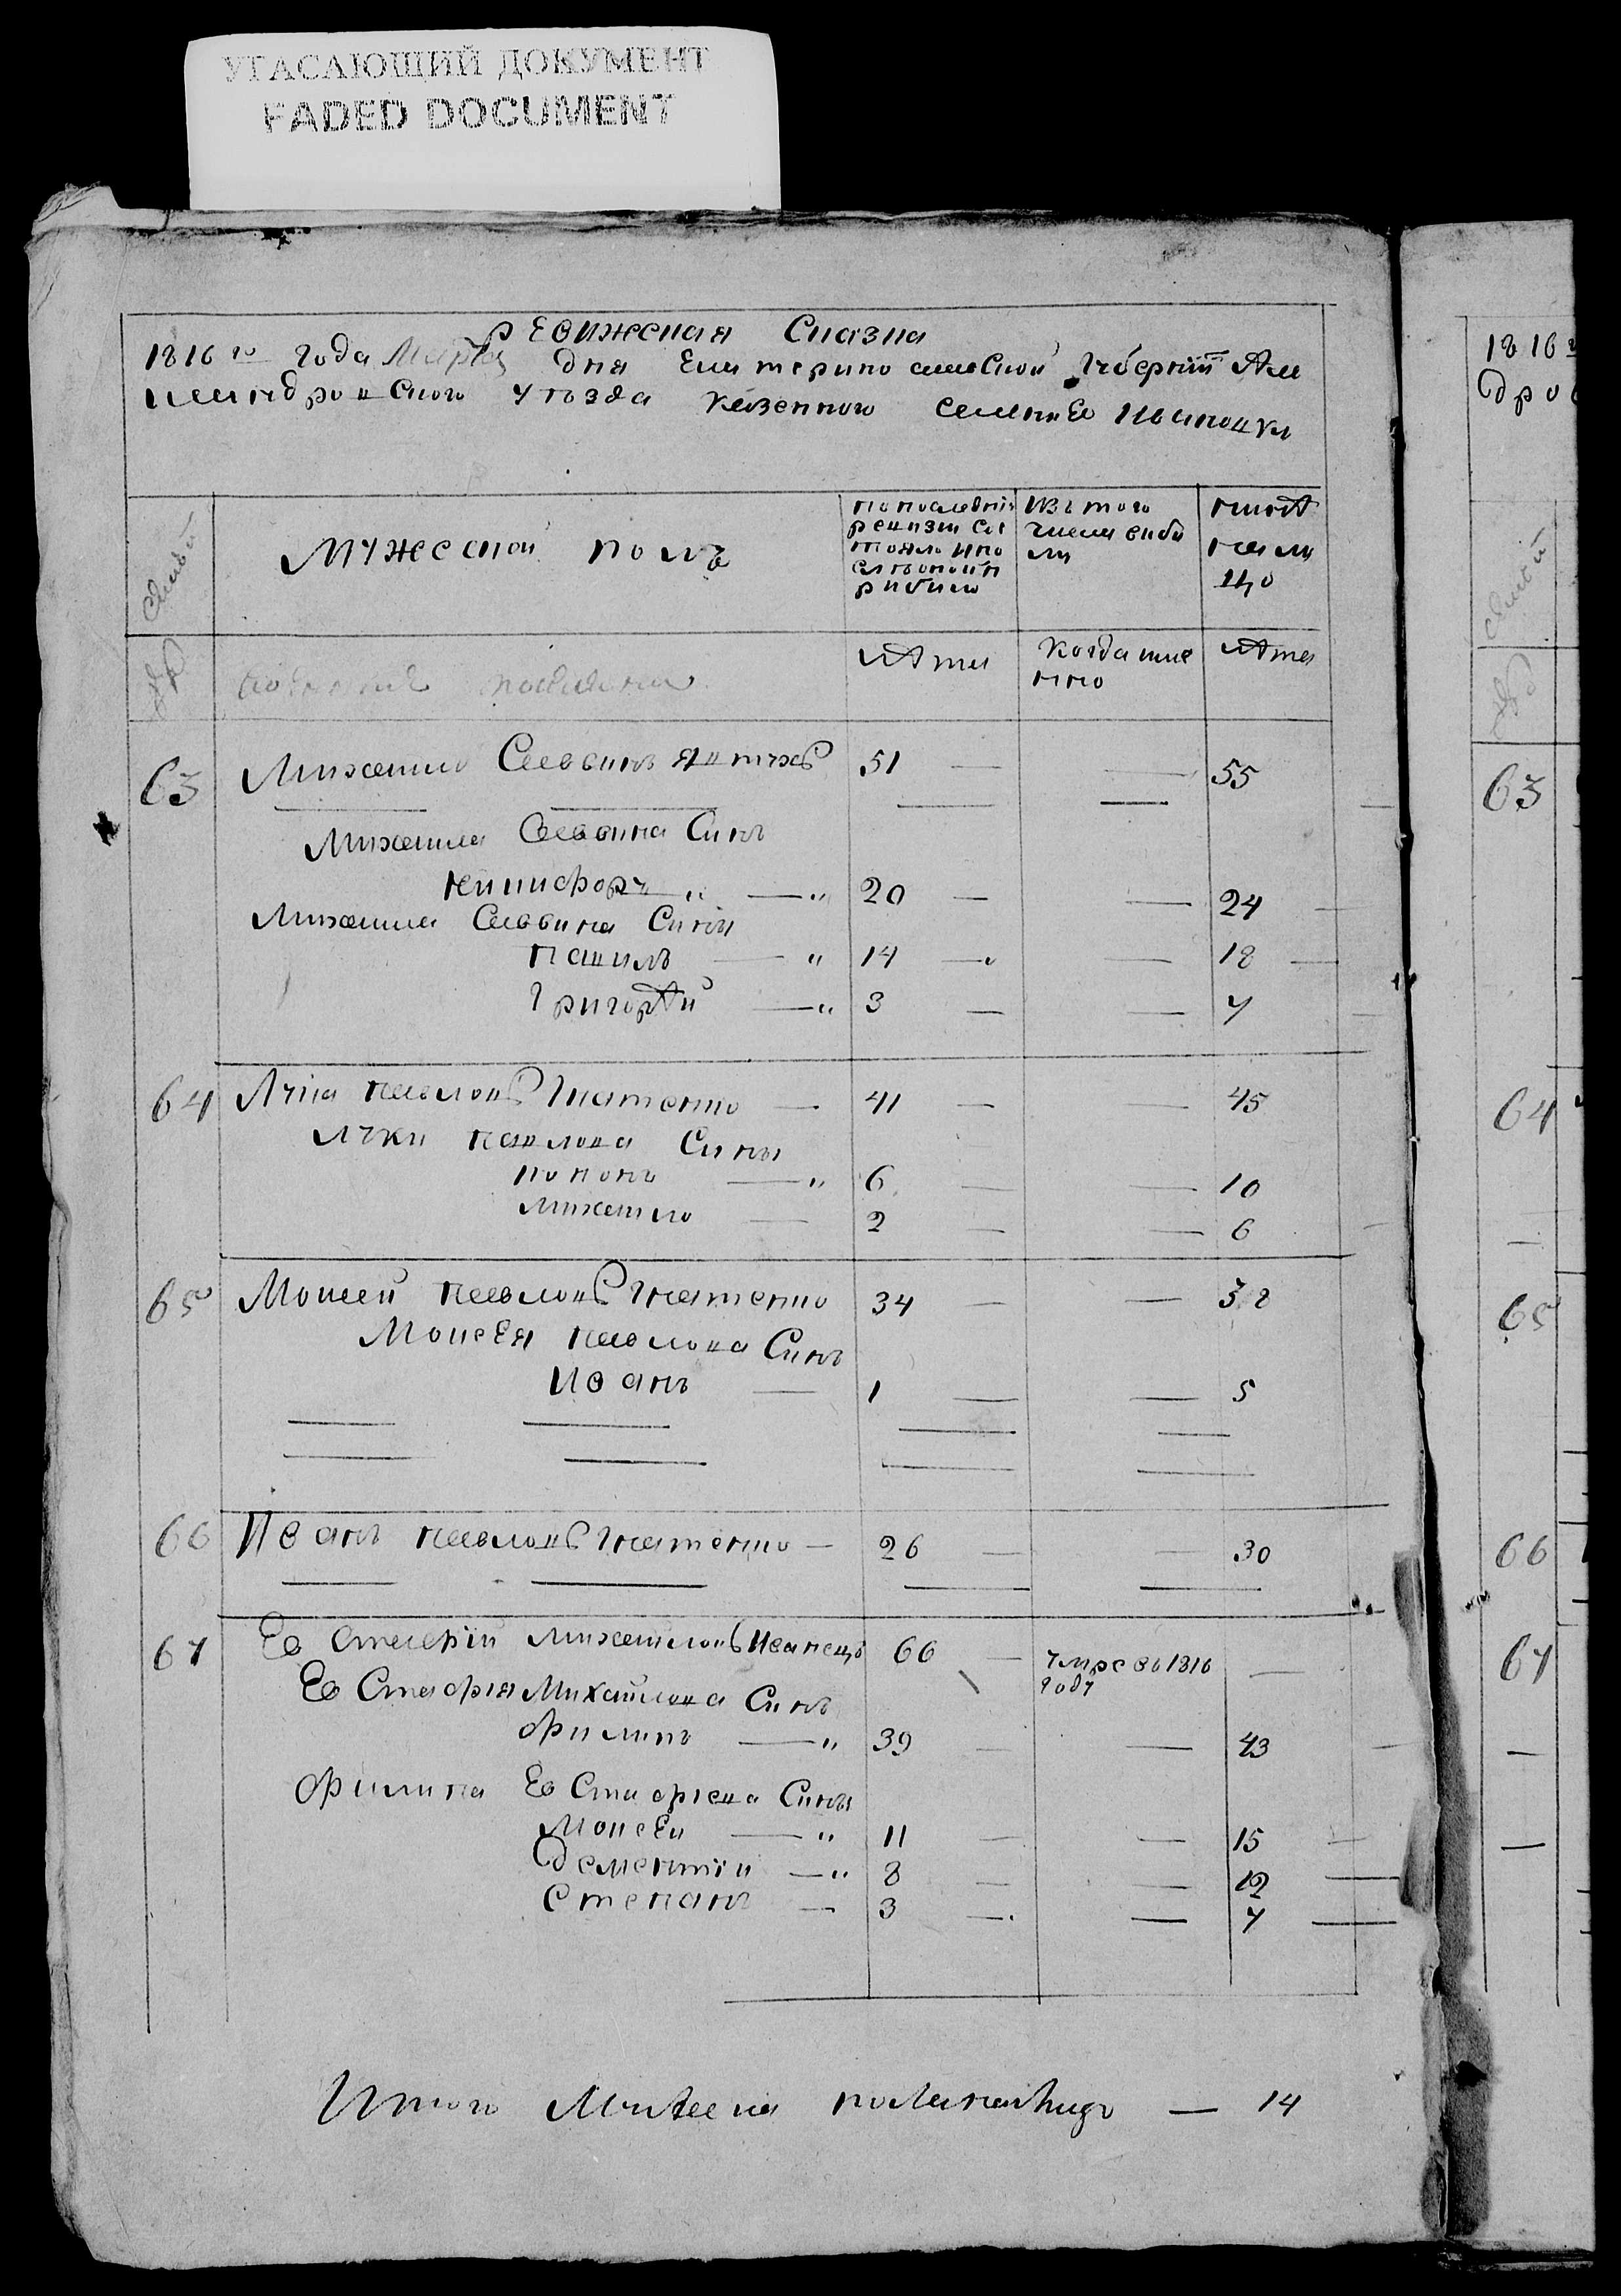 УГАСАЮЩИЙ ДОКУМЕНТ
FADED DOCUMENT
рЕвижеская Сказка
1816 го года Марта дня Екатеринославской Губернiи Але
ксандровского уѣзда казенного селенiЕ Ивановки
семьи
Мужеской полъ
по последней ревизiи состояло и после оной прибыло
Изъ того числа выбыли
ныне на лицо
№
лета
Когда именно
лета
63 Михаило Саввинъ 51 — — 55
Михаила Саввина Синъ
Никифоръ — 20 — — 24
Михаила Саввина Сины
Павилъ — 14 — — 18
Григорiй — 3 — — 7
64 Лука Павловъ Гнатенко — 41 — — 45
Луки Павлова Сины
Кононъ — 6 — — 10
Михаило — 2 — — 6
65 Моисей Павловъ Гнатенко 34 — — 38
МоисЕя Павлова Синъ
Иванъ — 1 — — 5
66 Иванъ Павловъ Гнатенко — 26 — — 30
67 Евстафiй Михайловъ Иванецъ 66 — умре въ 1816 году —
Евстафiя Михайлова Синъ
Филипъ — 39 — — 43
Филипа Евстафiева Сины
МоисЕй — 11 — — 15
Дементiй — 8 — — 12
Степанъ — 3 — — 7
Итого Мужеска пола на лицо — 14
1816
дро
семьи
№
63
64
65
66
67